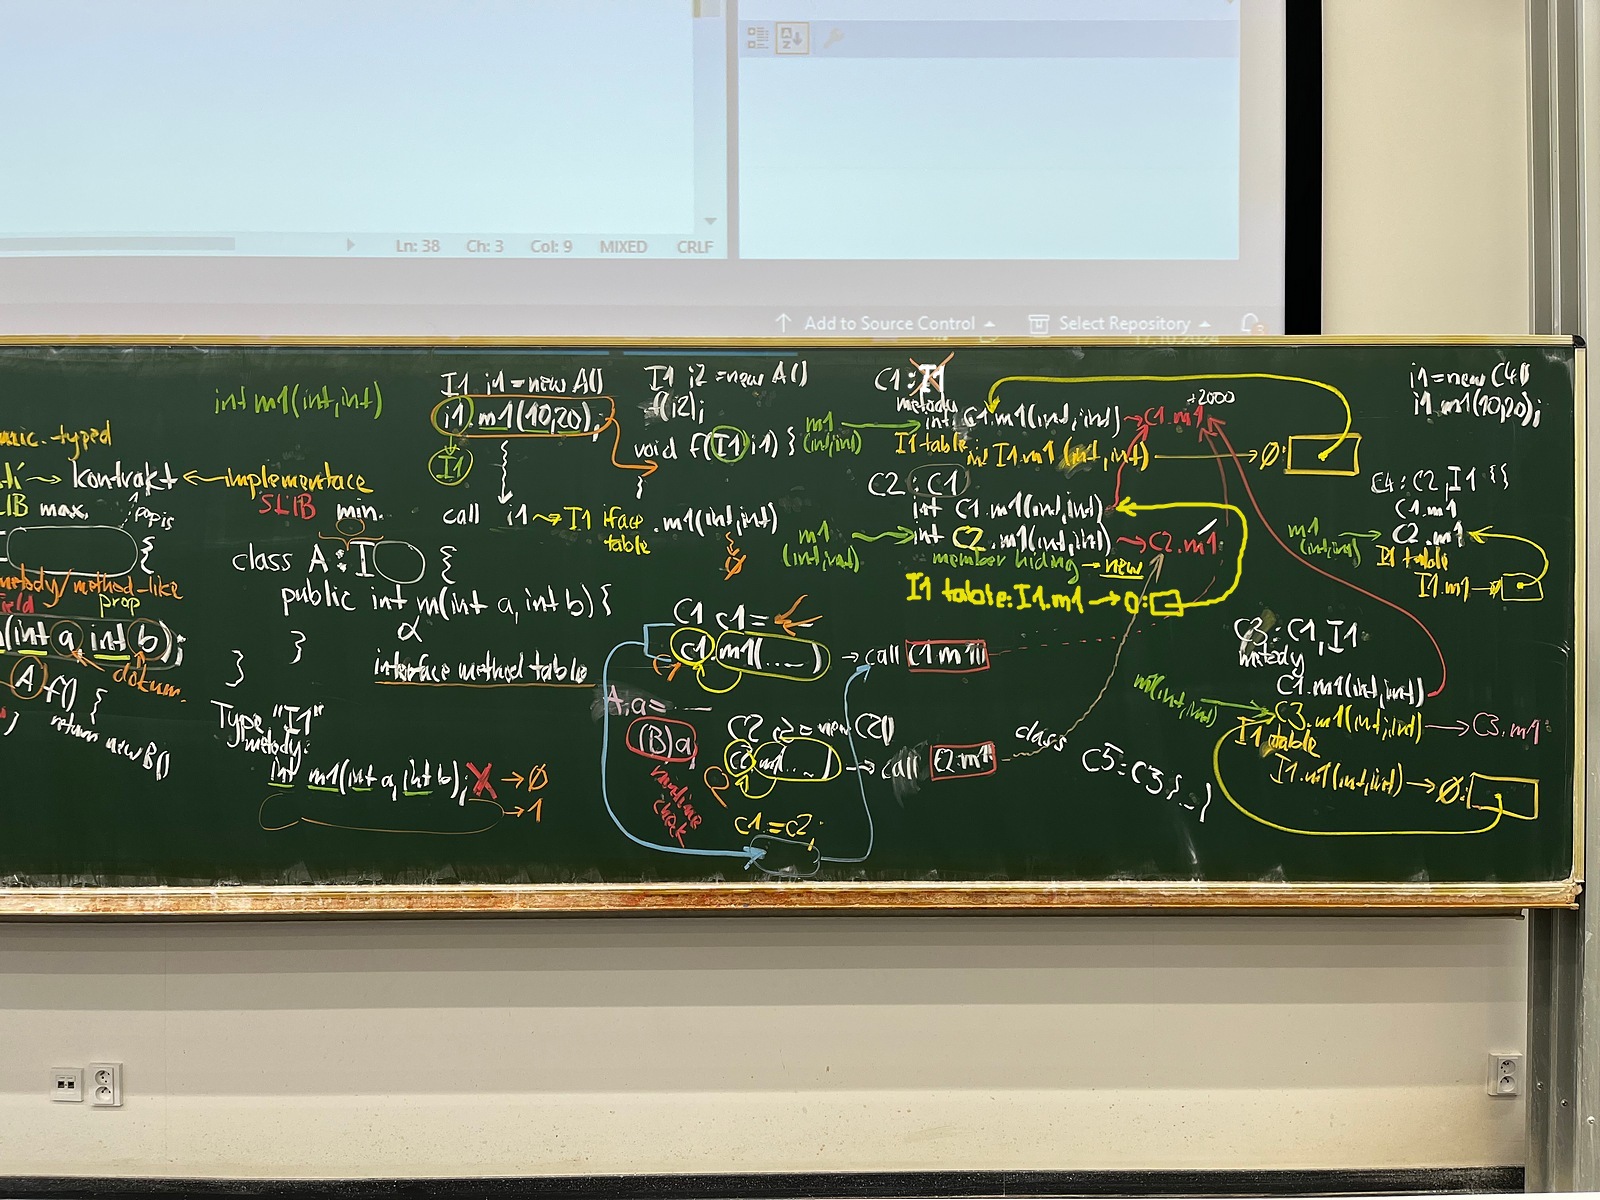 Ln: 38 Ch: 3 Col: 9 MIXED CRLF
Add to Source Control
Select Repository
17.10.2024
int m1(int,int)
typed
kontrakt
implementace
LIB max.
SLIB min.
popis
{
class A : I {
metody/method-like
prop
public int m(int a, int b) {
(int a, int b);
}
}
A f() {
datum.
return new B()
}
Type "I1"
metody:
int m1(int a, int b); X → 0
→ 1
I1 i1 = new A()
i1.m1(10,20);
I1
call i1 → I1 iface table .m1(int,int)
interface method table
I1 i2 = new A()
f(i2);
void f(I1 i1) {
}
C1 c1 =
c1.m1(....)
→ call C1.m1
A a =
(B)a
runtime
check
C2 c2 = new C2()
→ call C2.m1
c1 = c2;
C1 : I1
metody
m1
(int,int)
int C1.m1(int,int) → C1.m1
+2000
I1 table
int I1.m1 (int,int) → 0:
C2 : C1
int C1.m1(int,int)
m1
(int,int)
int C2.m1(int,int) → C2.m1
member hiding → new
I1 table: I1.m1 → 0:
class C5 : C3 {...}
C3 : C1, I1
metody
C1.m1(int,int)
m1(int,int)
C3.m1(int,int) → C3.m1
I1 table
I1.m1(int,int) → 0:
i1 = new C4()
i1.m1(10,20);
C4 : C2, I1 {}
C1.m1
m1
(int,int)
C2.m1
I1 table
I1.m1 →